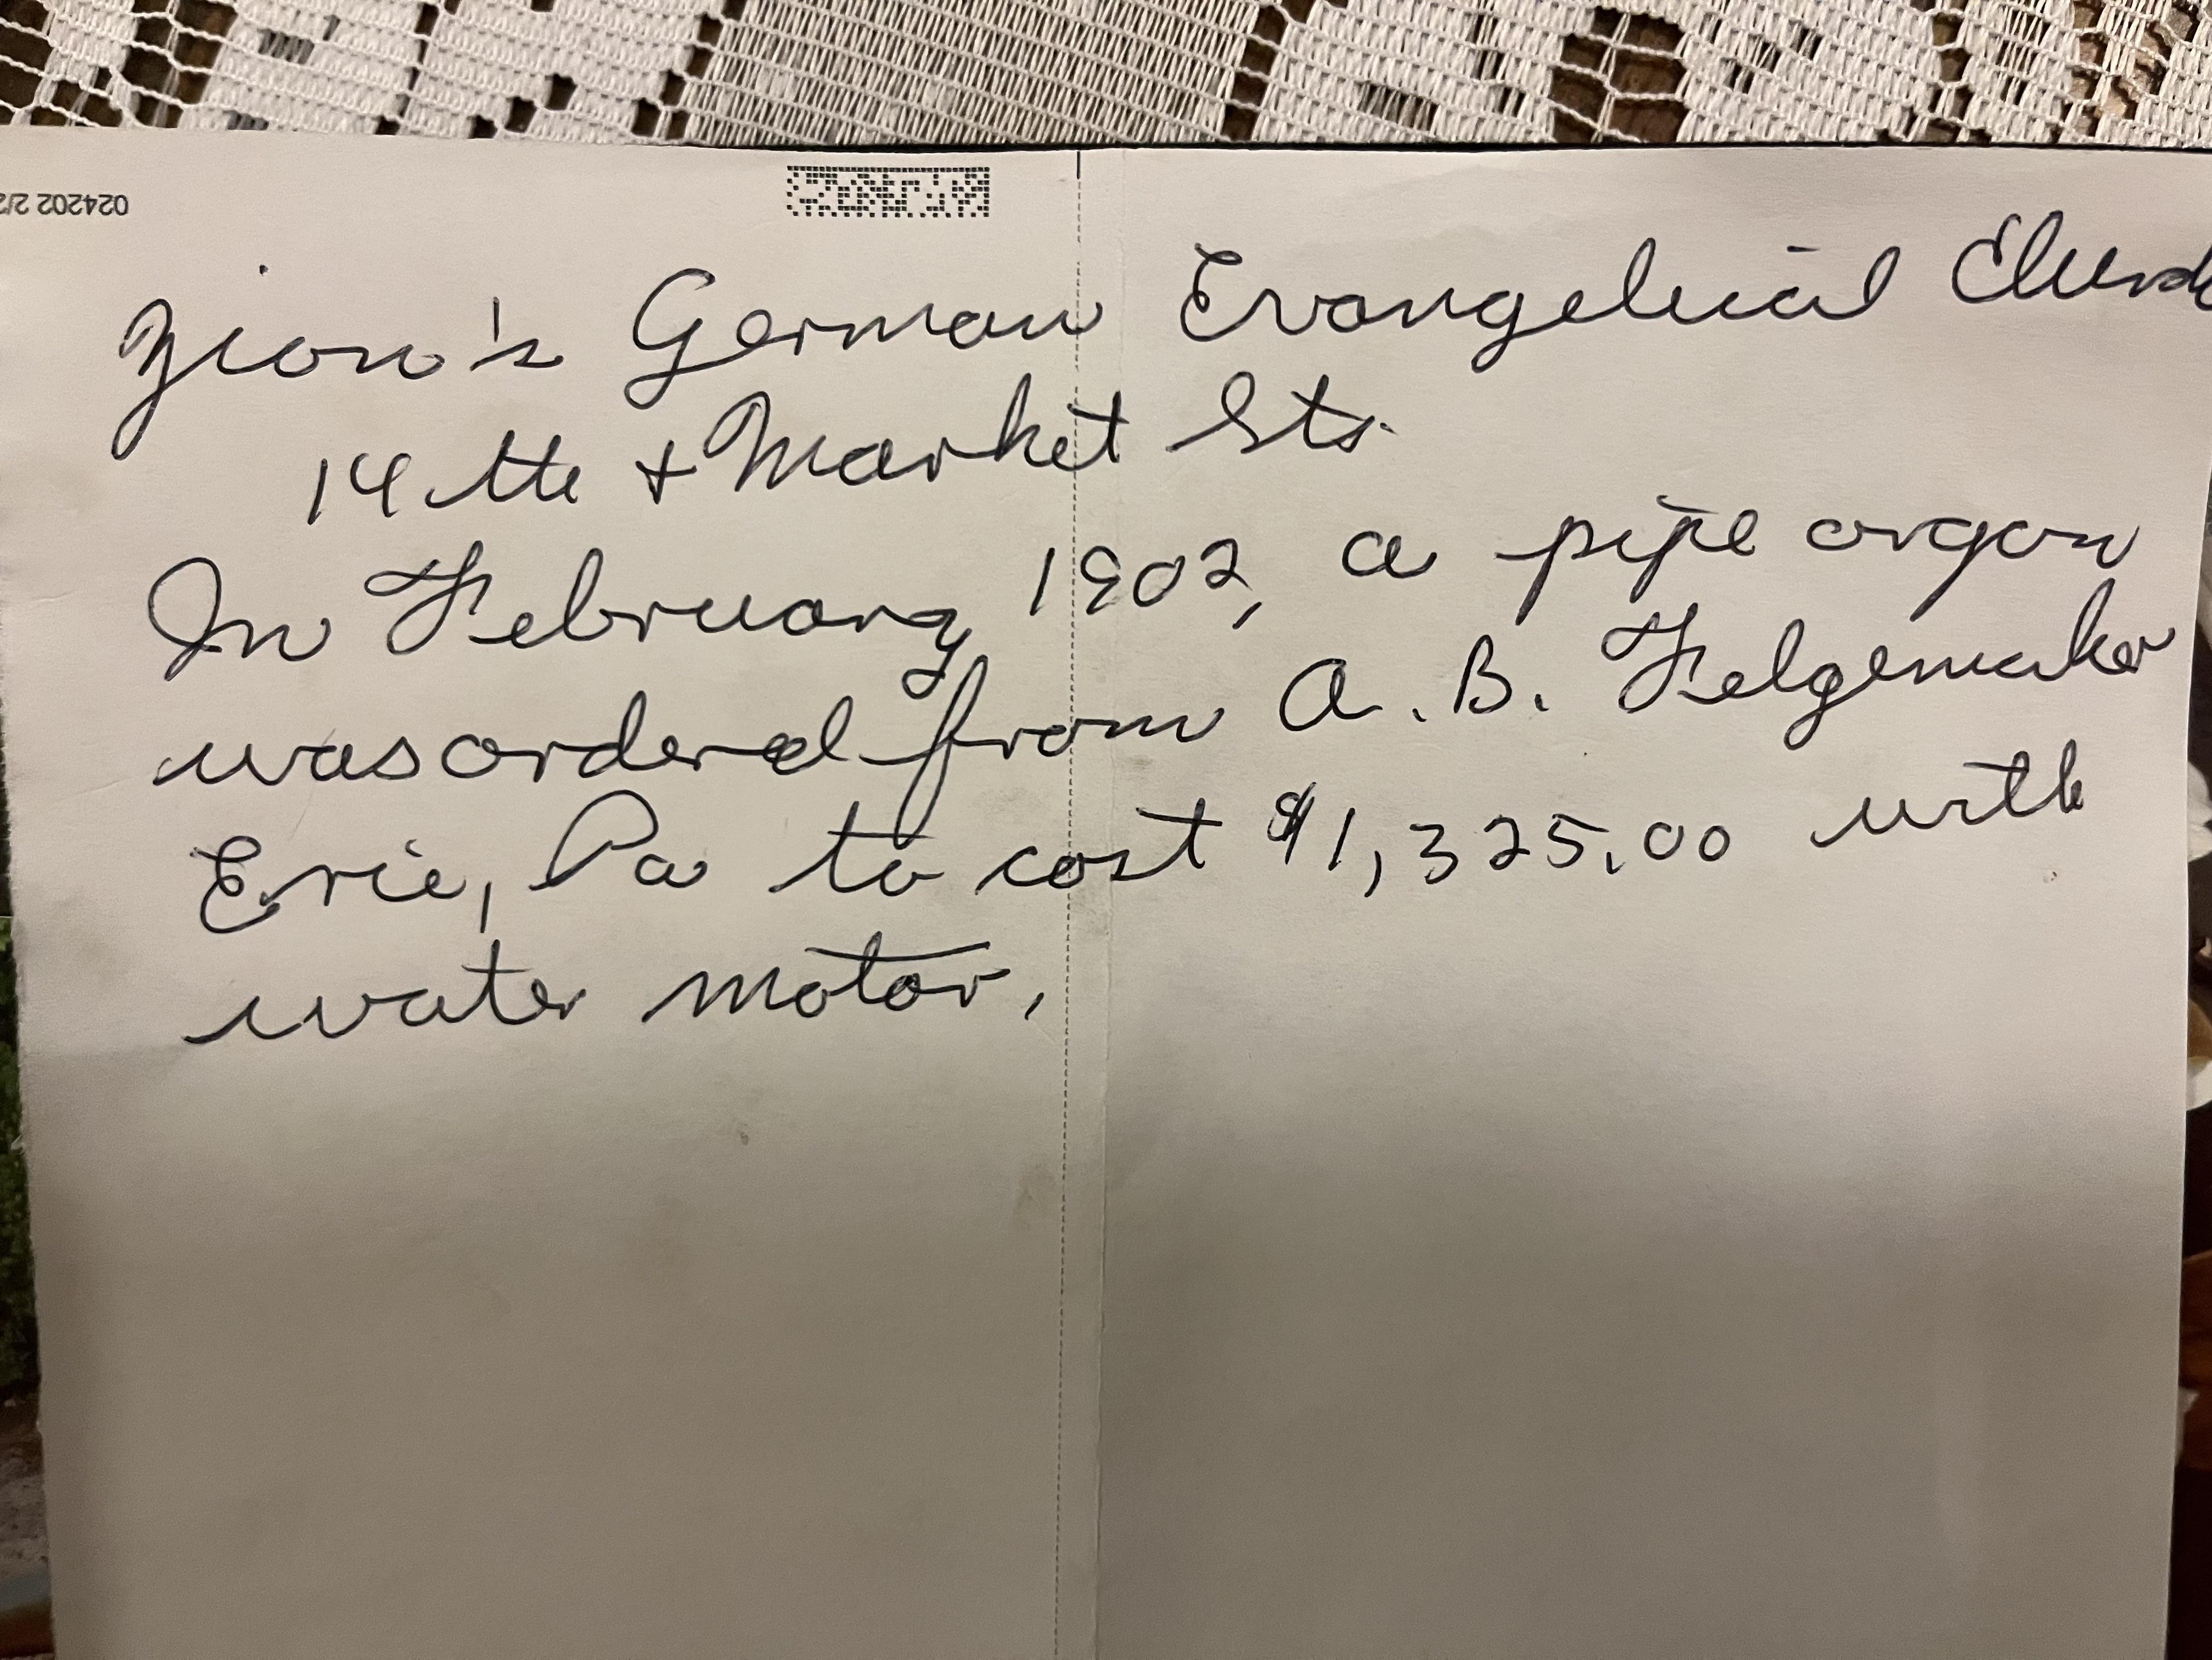 024202 2/2
Zion's German Evangelical Church
14th + Market Sts.
In February 1902, a pipe organ
was ordered from A. B. Felgemaker
Erie, Pa to cost $1,325.00 with
water motor.